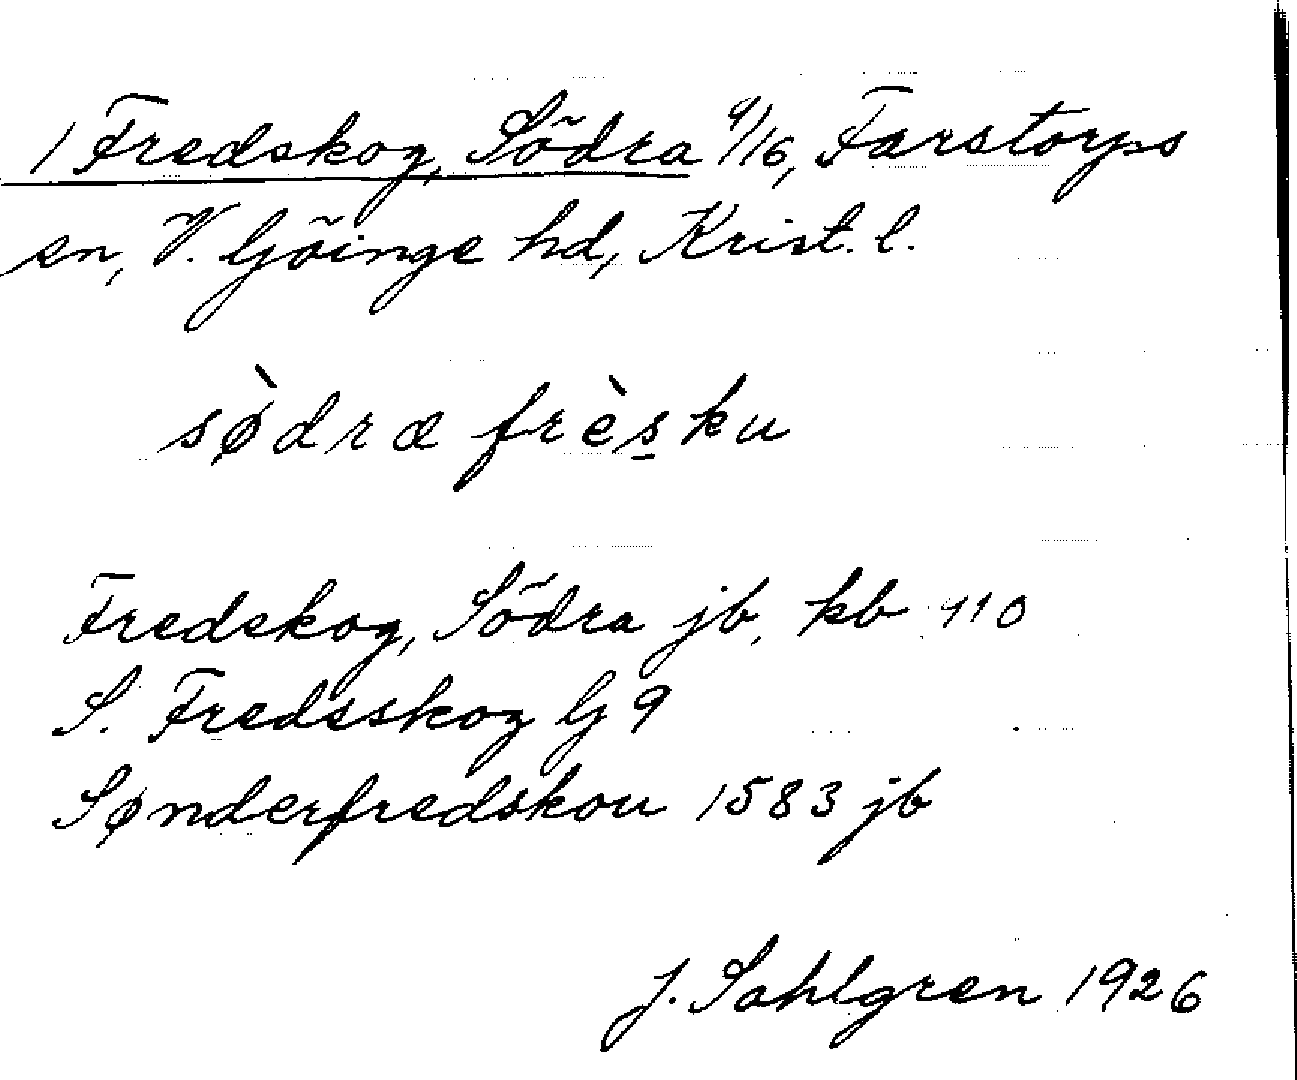 1 Fredskog, Södra 9/16, Farstorps
sn, V. Göinge hd, Krist. l.
sø̀dra frèsku
Fredskog, Södra jb, kb 110
S. Fredsskog G 9
Sønderfredskou 1583 jb
J. Sahlgren 1926